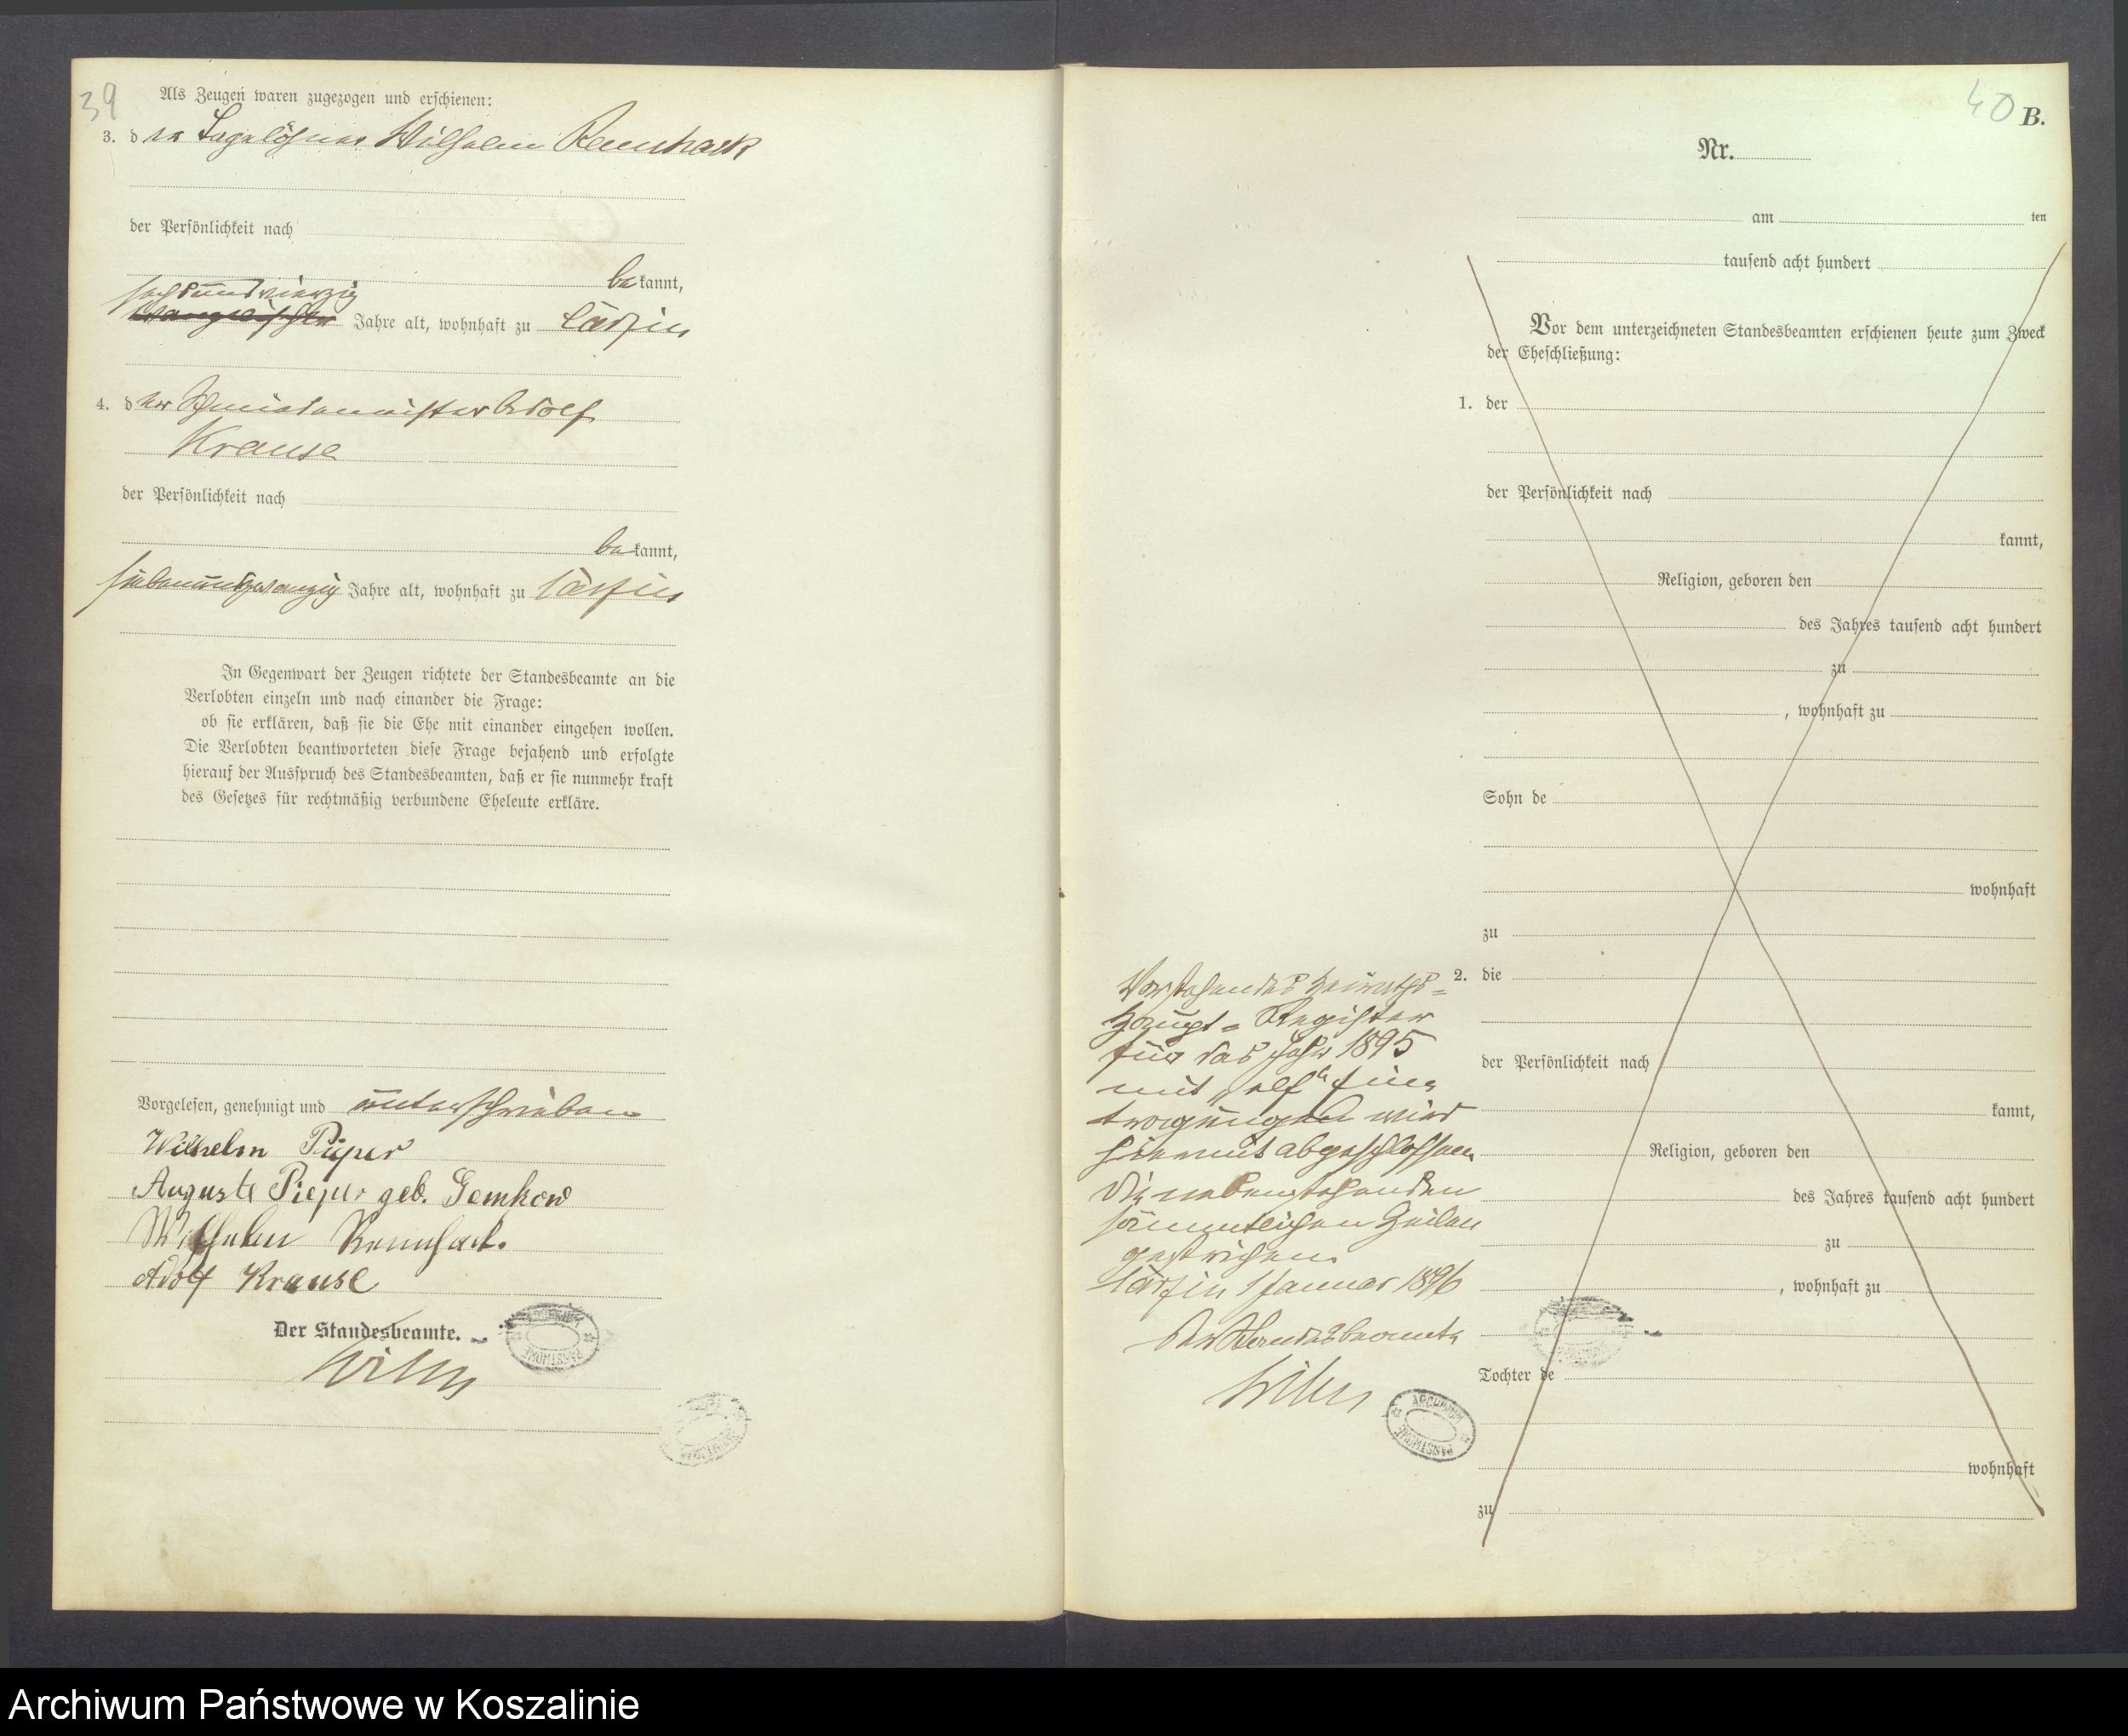 39
Als Zeugen waren zugezogen und erschienen:
3. der Tagelöhner Wilhelm Rennhack
der Persönlichkeit nach
bekannt,
sechsundvierzig
evangelischer Jahre alt, wohnhaft zu Lärzin
4. der Schmiedemeister Adolf
Krause
der Persönlichkeit nach
bekannt,
siebenundzwanzig Jahre alt, wohnhaft zu Lärzin
In Gegenwart der Zeugen richtete der Standesbeamte an die
Verlobten einzeln und nach einander die Frage:
ob sie erklären, daß sie die Ehe mit einander eingehen wollen.
Die Verlobten beantworteten diese Frage bejahend und erfolgte
hierauf der Ausspruch des Standesbeamten, daß er sie nunmehr kraft
des Gesetzes für rechtmäßig verbundene Eheleute erkläre.
Vorgelesen, genehmigt und unterschrieben
Wilhelm Pieper
Auguste Pieper geb. Gemkow
Wilhelm Rennhack.
Adolf Krause
Der Standesbeamte.
40
B.
Nr.
am ten
tausend acht hundert
Vor dem unterzeichneten Standesbeamten erschienen heute zum Zweck
der Eheschließung:
1. der
der Persönlichkeit nach
kannt,
Religion, geboren den
des Jahres tausend acht hundert
zu
, wohnhaft zu
Sohn de
wohnhaft
zu
2. die
der Persönlichkeit nach
kannt,
Religion, geboren den
des Jahres tausend acht hundert
zu
, wohnhaft zu
Tochter de
wohnhaft
zu
Vorstehendes Heiraths-
Haupt-Register
für das Jahr 1895
mit "elf" Ein
tragungen wird
hiermit abgeschlossen
Die nebenstehenden
sämmtlichen Zeilen
gestrichen.
Lärzin 1 Januar 1896
Der Standesbeamte
ARCHIWUM PAŃSTWOWE
Archiwum Państwowe w Koszalinie